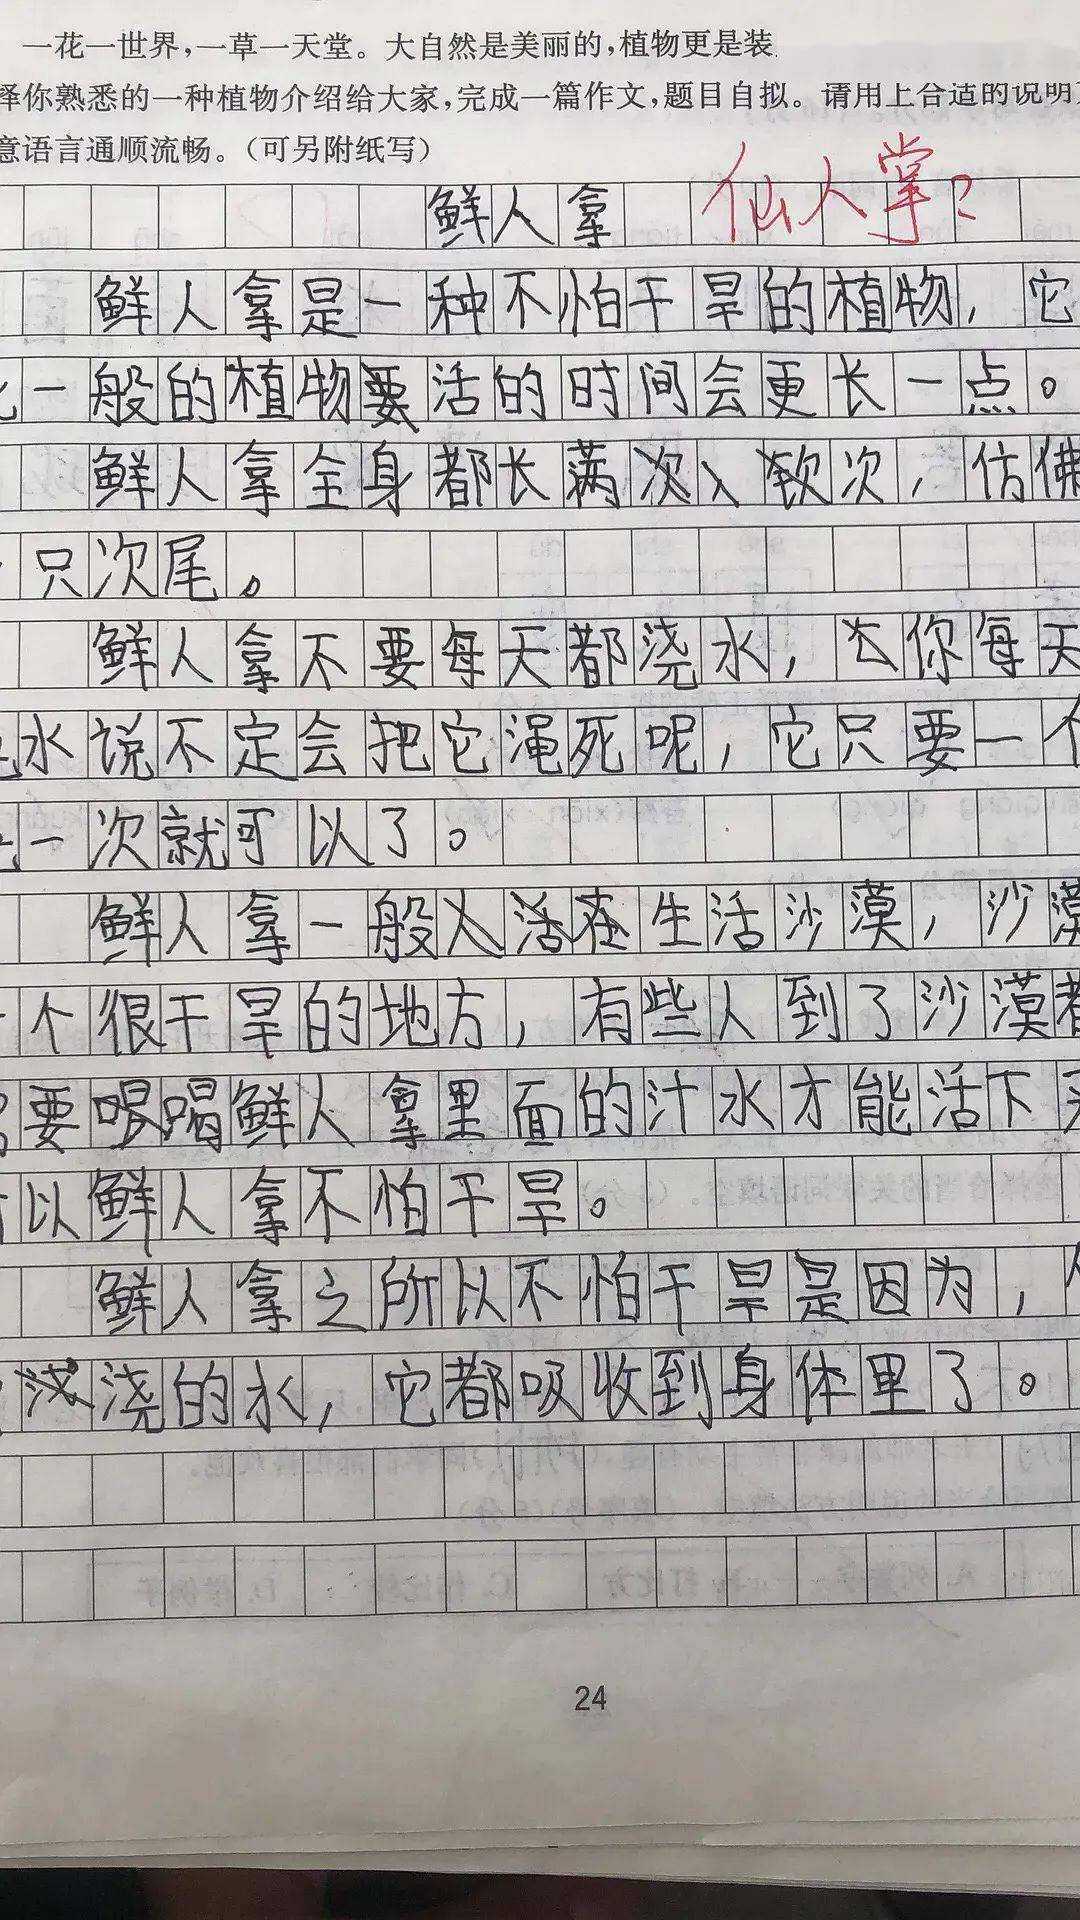 一花一世界，一草一天堂。大自然是美丽的，植物更是装
择你熟悉的一种植物介绍给大家，完成一篇作文，题目自拟。请用上合适的说明
意语言通顺流畅。（可另附纸写）
鲜人拿 仙人掌?
鲜人拿是一种不怕干旱的植物，它
一般的植物要活的时间会更长一点。
鲜人拿全身都长满次、软次，仿佛
只次尾。
鲜人拿不要每天都浇水，你每天
水说不定会把它渑死呢，它只要一个
一次就可以了。
鲜人拿一般人活在生活沙漠，沙漠
个很干旱的地方，有些人到了沙漠都
要喝喝鲜人拿里面的汁水才能活下来
以鲜人拿不怕干旱。
鲜人拿之所以不怕干旱是因为，
浇的水，它都吸收到身体里了。
24